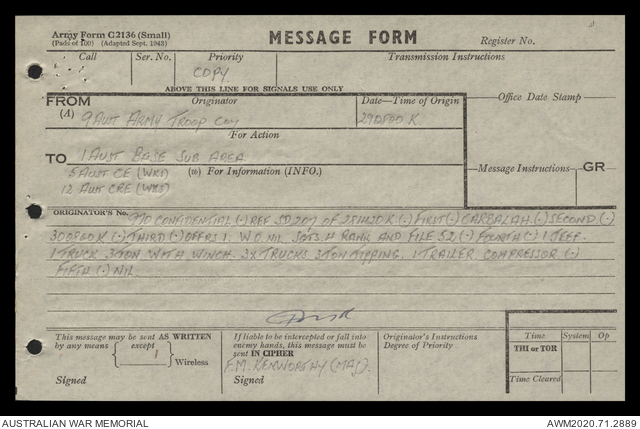 Army Form C2136 (Small)
(Pads of 100) (Adapted Sept. 1943)
MESSAGE FORM
Register No.
Call Ser. No. Priority Transmission Instructions
COPY
ABOVE THIS LINE FOR SIGNALS USE ONLY
FROM Originator Date—Time of Origin Office Date Stamp
(A) 9 AUST ARMY TROOP COY 290800 K
For Action
TO 1 AUST BASE SUB AREA
5 AUST CE (WKS) (W) For Information (INFO.) Message Instructions GR
12 AUST CRE (WKS)
ORIGINATOR'S No. CONFIDENTIAL (.) REF SD 207 OF 281420 K (.) FIRST (.) CARBALAH (.) SECOND (.)
300860 K (.) THIRD (.) OFFRS 1. W.O. NIL. SGTS. 4 RANK AND FILE 52 (.) FOURTH (.) 1 JEEP.
1 TRUCK 3 TON WITH WINCH. 3 X TRUCKS 3 TON TIPPING. 1 TRAILER COMPRESSOR (.)
FIFTH (.) NIL.
This message may be sent AS WRITTEN
by any means except
1 Wireless
Signed
If liable to be intercepted or fall into
enemy hands, this message must be
sent IN CIPHER
F.M. KENWORTHY (MAJ).
Signed
Originator's Instructions
Degree of Priority
Time System Op
THI or TOR
Time Cleared
AUSTRALIAN WAR MEMORIAL AWM2020.71.2889